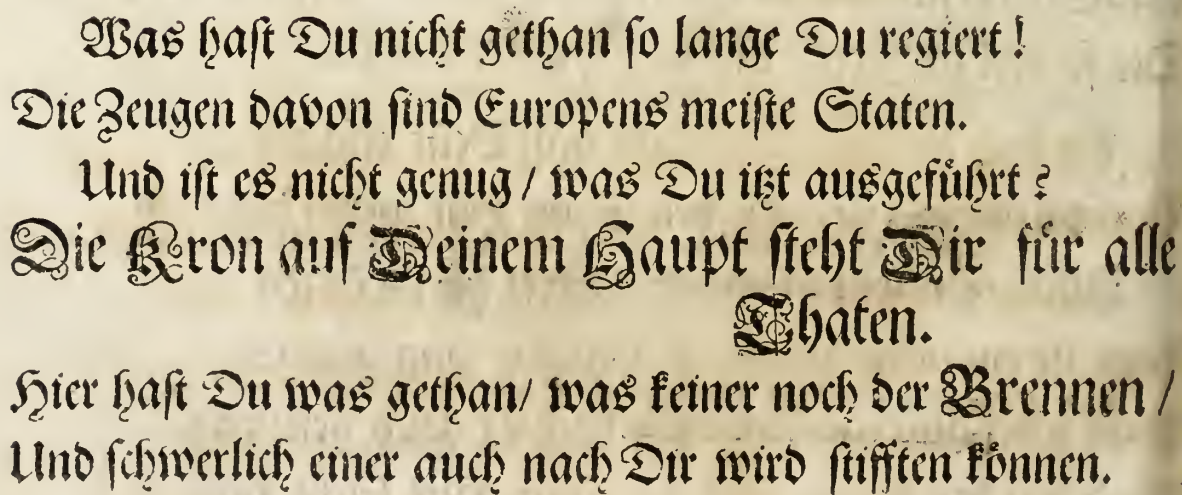 Was haſt Du nicht gethan ſo lange Du regiert!
Die Zeugen davon ſind Europens meiſte Staten.
Und iſt es nicht genug / was Du itzt ausgeführt?
Die Kron auf Deinem Haupt ſteht Dir für alle
Thaten.
Hier haſt Du was gethan / was keiner noch der Brennen /
Und ſchwerlich einer auch nach Dir wird ſtifften können.